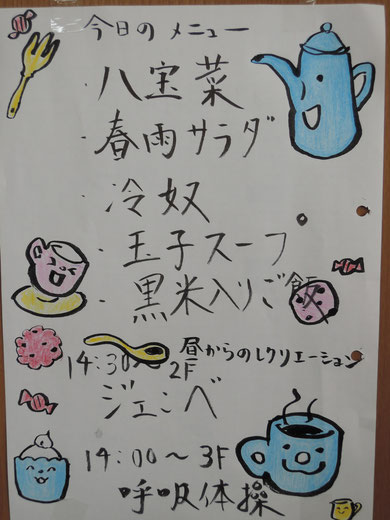 今日のメニュー
・八宝菜
・春雨サラダ
・冷奴
・玉子スープ
・黒米入りご飯
昼からのレクリエーション
14:30〜2F
ジェンベ
14:00〜3F
呼吸体操